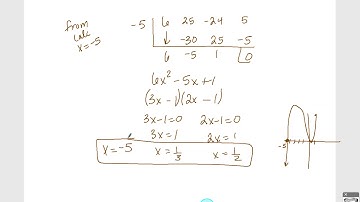 from
calc
x=-5
-5 | 6 25 -24 5
↓ -30 25 -5
6 -5 1 0
6x²-5x+1
(3x-1)(2x-1)
3x-1=0 2x-1=0
3x=1 2x=1
x=-5 x=1/3 x=1/2
-5